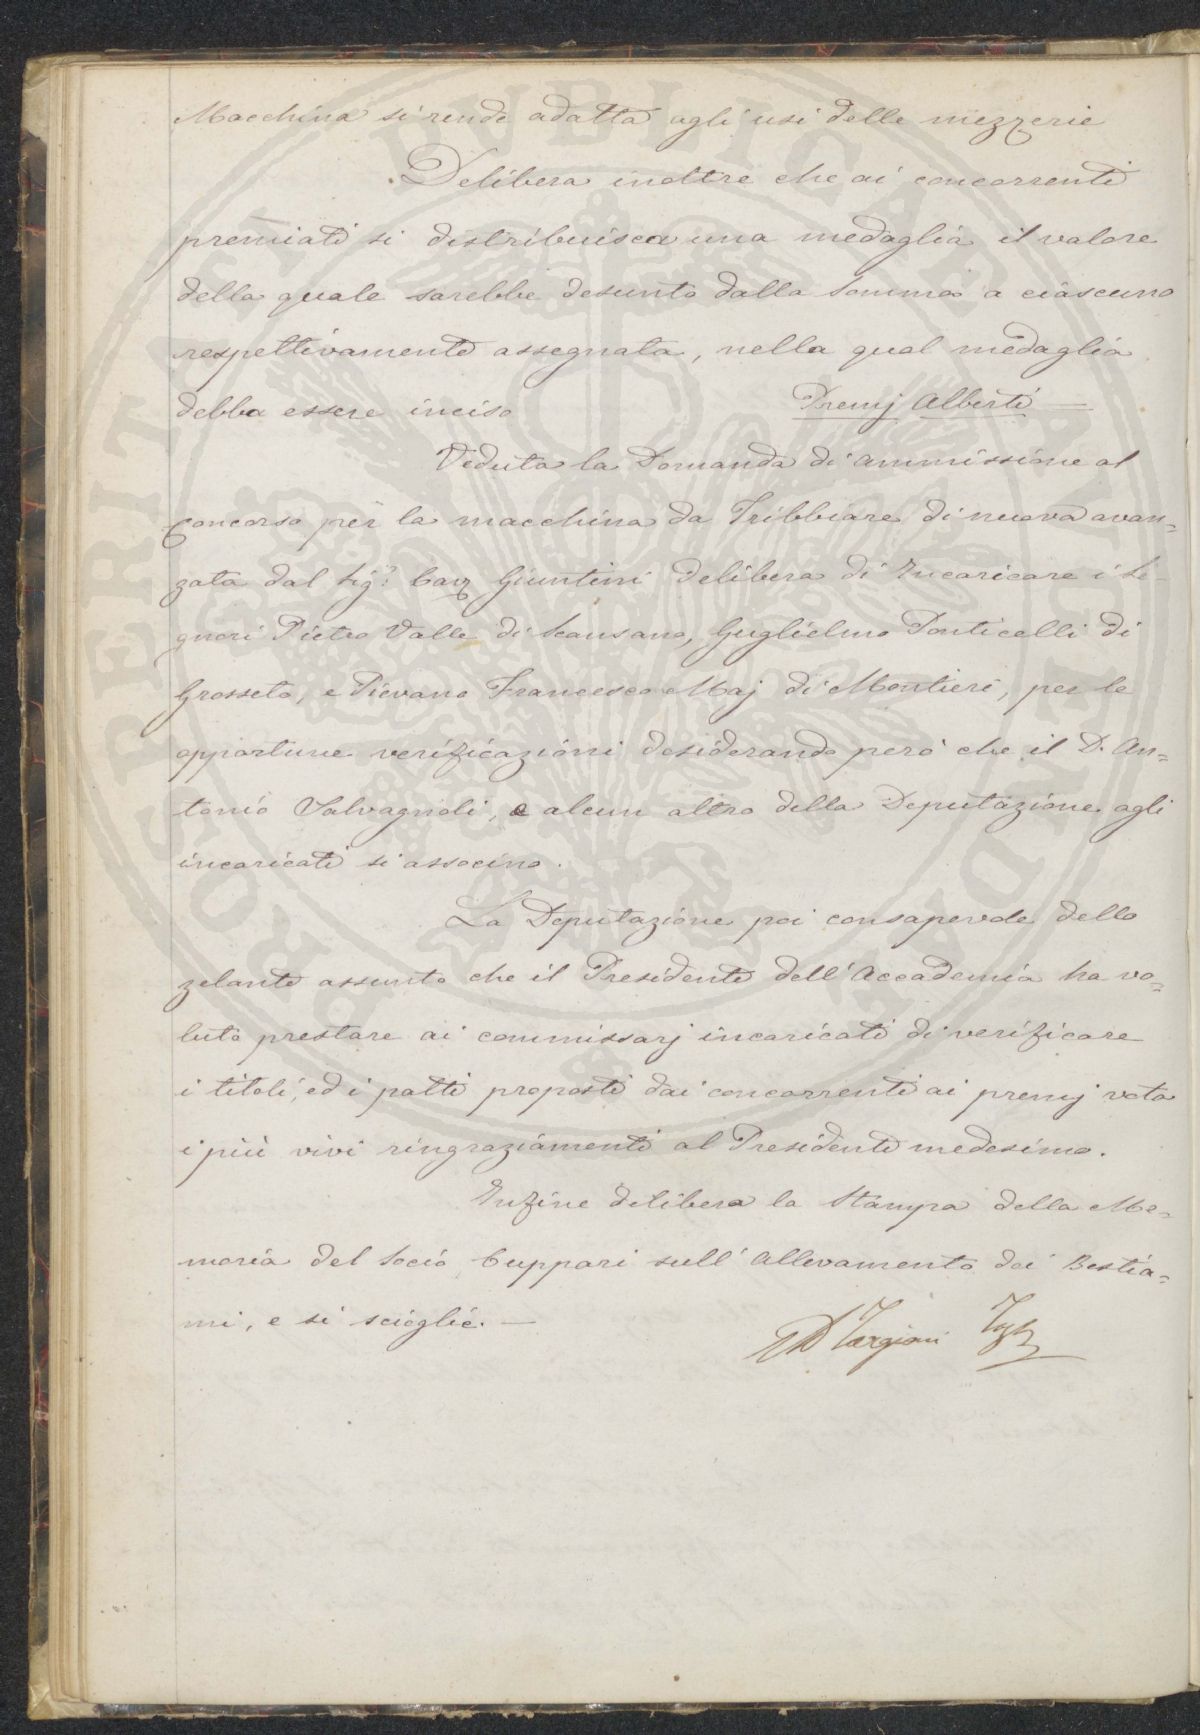 Macchina si rende adatta agli usi delle mezzerie
Delibera inoltre che ai concorrenti
premiati si distribuisca una medaglia il valore
della quale sarebbe desunto dalla somma a ciascuno
respettivamente assegnata, nella qual medaglia
debba essere inciso Premj Alberti —
Veduta la Domanda di ammissione al
Concorso per la macchina da Tribbiare di nuova avan=
zata dal Sig.r Cav Giuntini delibera di Incaricare i Si-
gnori Pietro Valle di Scansano, Guglielmo Ponticelli di
Grosseto, e Pievano Francesco Maj di Montieri, per le
opportune verificazioni desiderando però che il D. An=
tonio Salvagnoli, e alcun altro della Deputazione agli
incaricati si associno.
La Deputazione poi consapevole dello
zelante assunto che il Presidente dell'Accademia ha vo=
luto prestare ai commissarj incaricati di verificare
i titoli, ed i patti proposti dai concorrenti ai premj vota
i più vivi ringraziamenti al Presidente medesimo.
Infine delibera la Stampa della Me=
moria del Socio Cuppari sull'Allevamento dei Bestia=
mi, e si scioglie. —
Targioni Tzz
PROSPERITATI PUBLICAE AUGENDAE